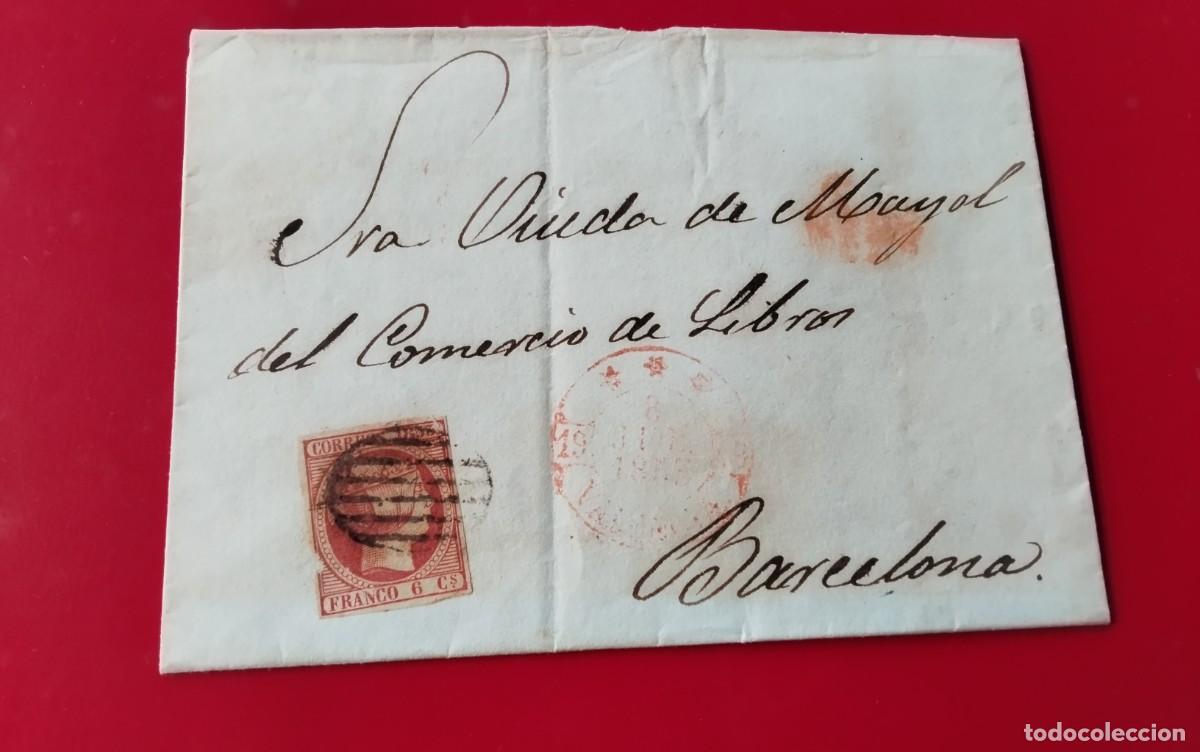 Sra Viuda de Mayol
del Comercio de Libros
CORREOS
FRANCO 6 Cs
19
8
Barcelona.
todocoleccion